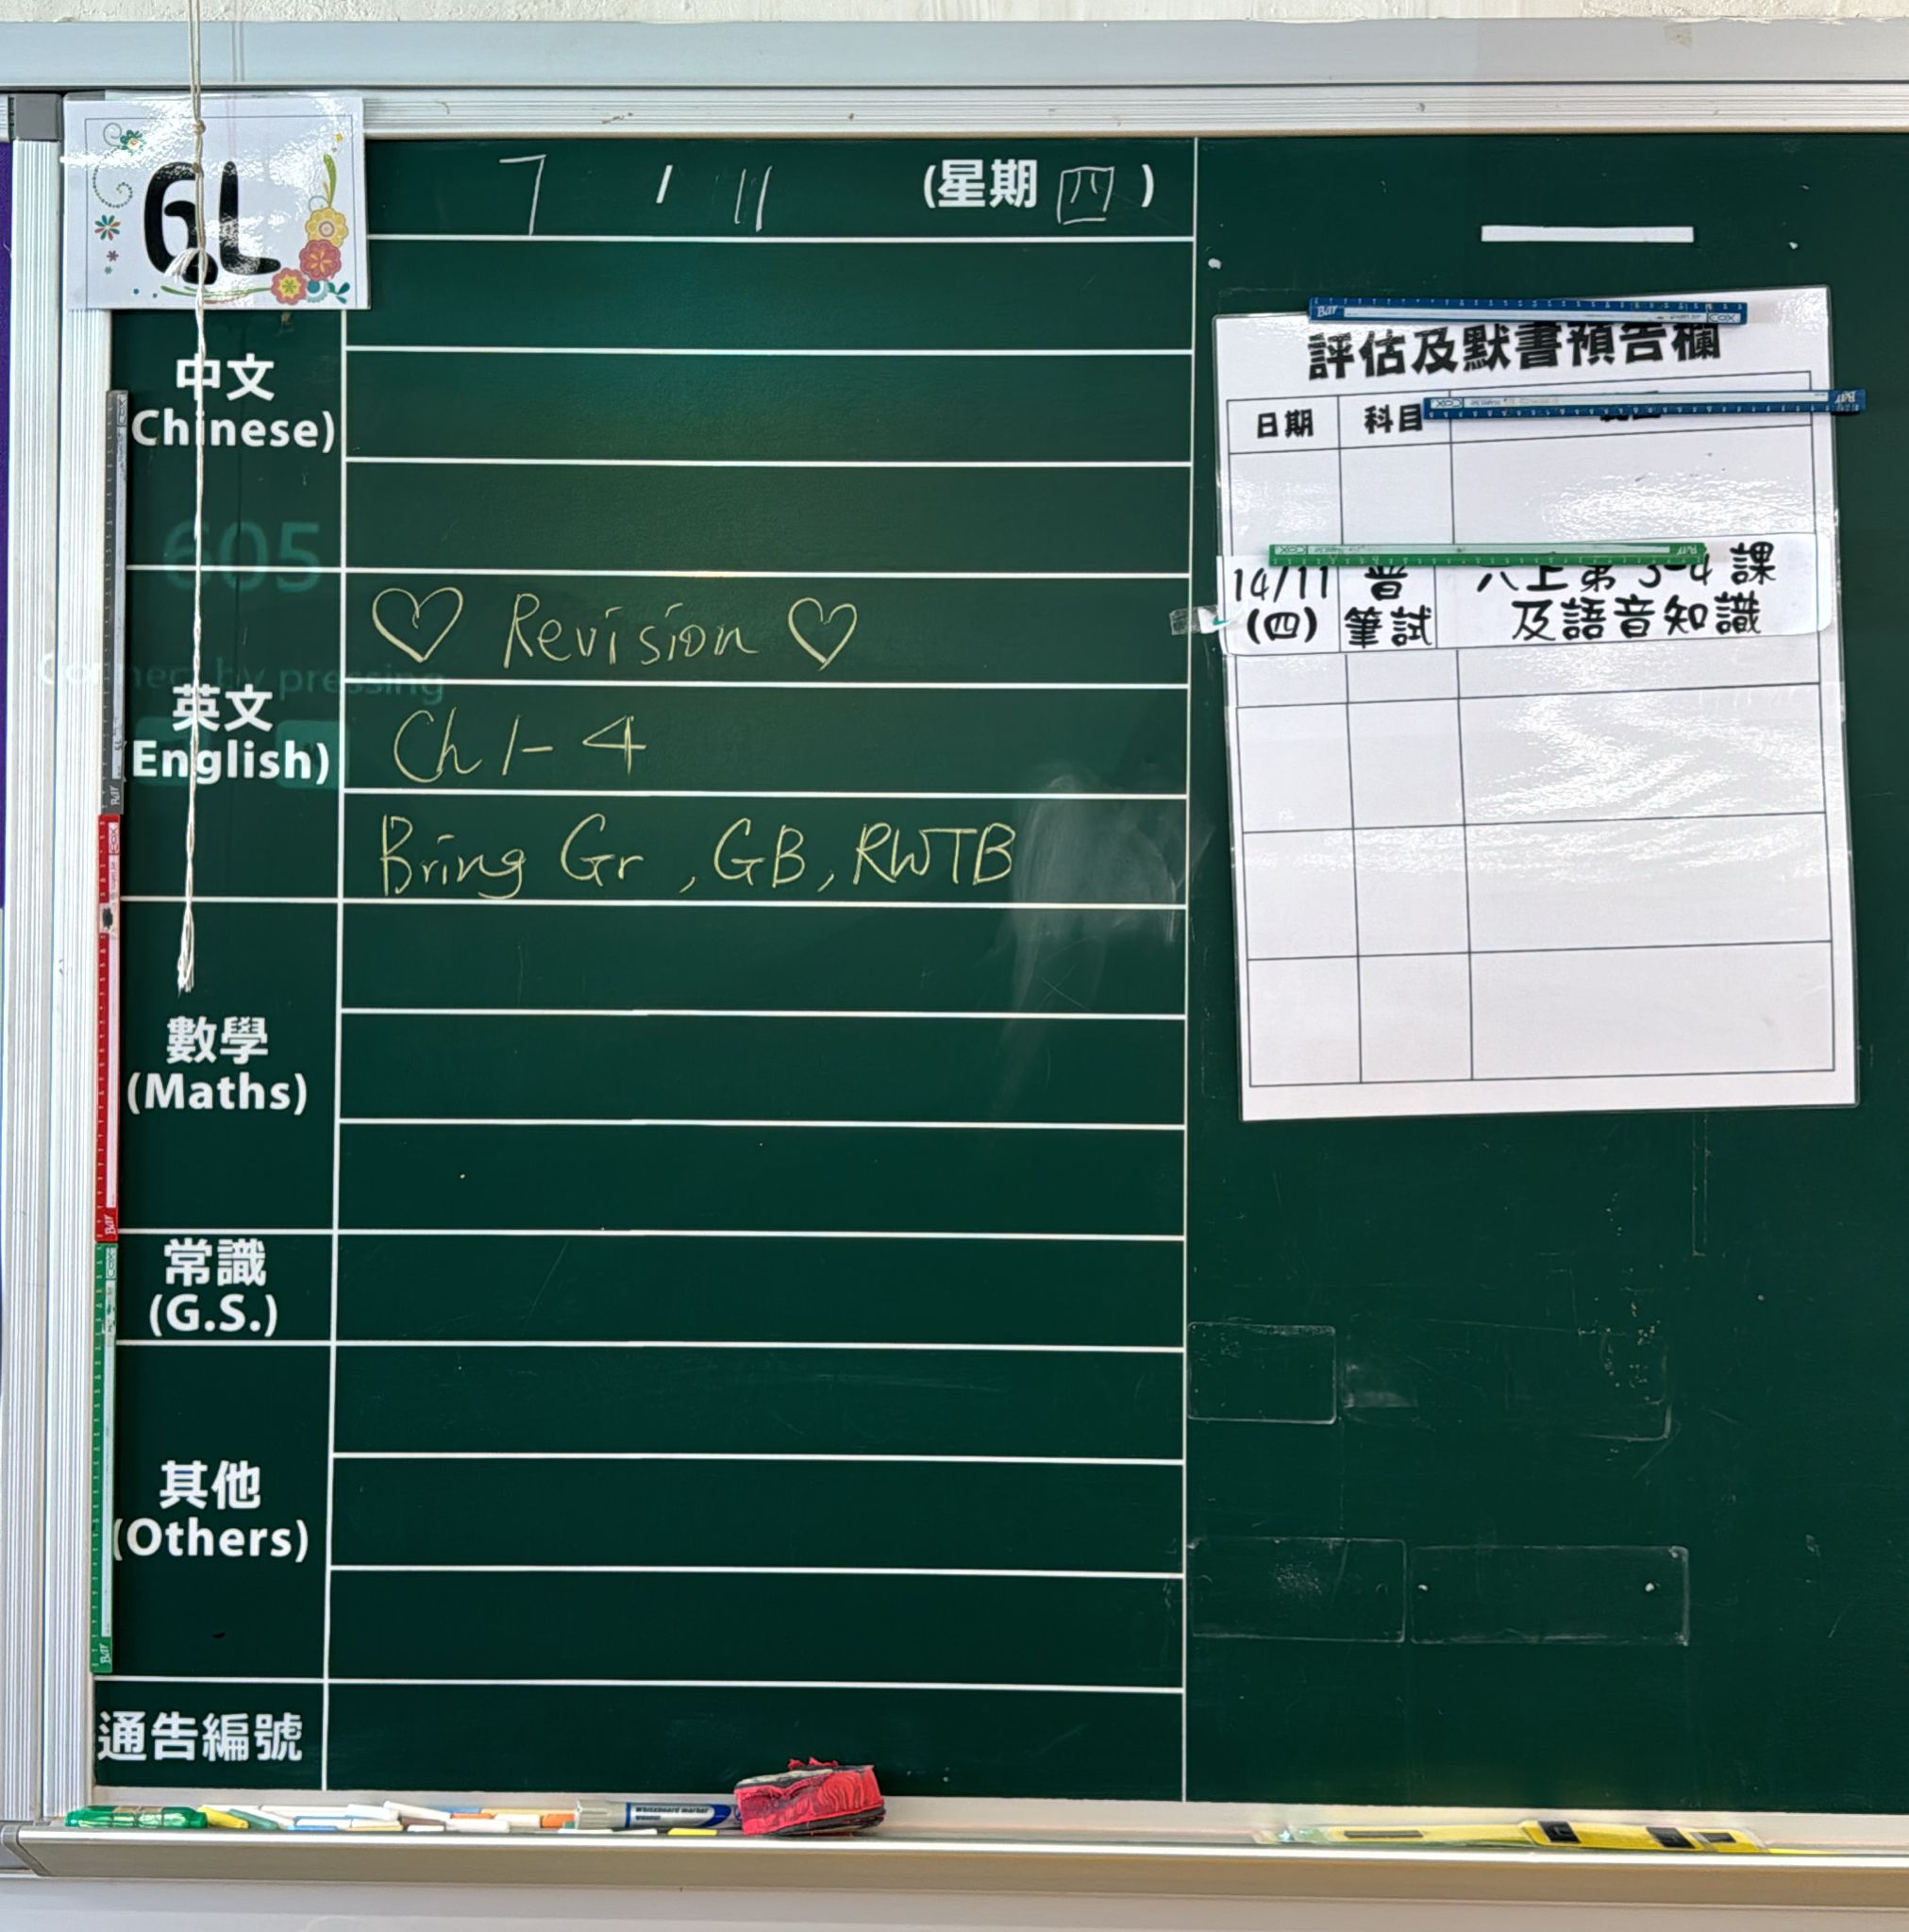 6L
7 / 11 (星期 四 )
中文
(Chinese)
605
Connect by pressing
英文
(English)
♡ Revision ♡
Ch 1-4
Bring Gr , GB, RWTB
數學
(Maths)
常識
(G.S.)
其他
(Others)
通告編號
評估及默書預告欄
日期 科目
14/11 普 六上第3-4課
(四) 筆試 及語音知識
Whiteboard marker